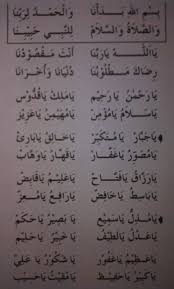 بِسْمِ اللهِ بَدَأْنَا وَالْحَمْدُ لِرَبِّنَا
وَالصَّلَاةُ وَالسَّلَامُ لِلنَّبِي حَبِيْبِنَا
يَا اَللهُ يَارَبَّنَا اَنْتَ مَقْصُوْدُنَا
رِضَاكَ مَطْلُوْبُنَا دُنْيَانَا وَأُخْرَانَا
يَارَحْمٰنُ يَارَحِيْم يَامَلِكُ يَاقُدُّوْس
يَاسَلَامُ يَامُؤْمِن يَامُهَيْمِنُ يَاعَزِيْز
يَاجَبَّارُ يَامُتَكَبِّر يَاخَالِقُ يَابَارِئ
يَامُصَوِّرُ يَاغَفَّار يَاقَهَّارُ يَاوَهَّاب
يَارَزَّاقُ يَافَتَّاح يَاعَلِيْمُ يَاقَابِض
يَابَاسِطُ يَاخَافِض يَارَافِعُ يَامُعِزّ
يَامُذِلُّ يَاسَمِيْع يَابَصِيْرُ يَاحَكَم
يَاعَدْلُ يَالَطِيْف يَاخَبِيْرُ يَاحَلِيْم
يَاعَظِيْمُ يَاغَفُوْر يَاشَكُوْرُ يَاعَلِيّ
يَاكَبِيْرُ يَاحَفِيْظ يَامُقِيْتُ يَاحَسِيْب